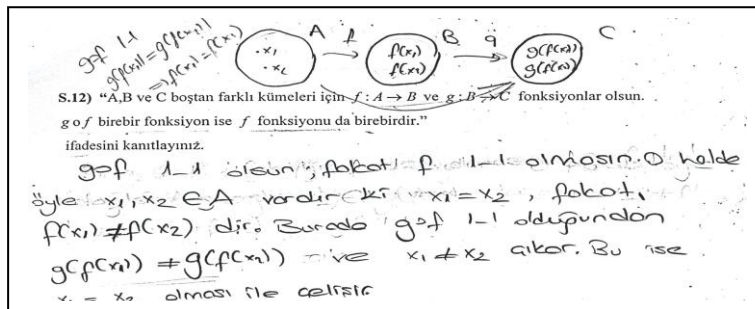 gof 1-1
g(f(x₁))=g(f(x₂))
⇒ f(x₁)=f(x₂)
A f B g C
.x₁ f(x₁) g(f(x₁))
.x₂ f(x₂) g(f(x₂))
S.12) “A,B ve C boştan farklı kümeleri için f : A → B ve g : B → C fonksiyonlar olsun.
g o f birebir fonksiyon ise f fonksiyonu da birebirdir.”
ifadesini kanıtlayınız.
gof 1-1 olsun, fakat f 1-1 olmasın. O halde
öyle x₁, x₂ ∈ A vardır ki x₁ = x₂, fakat,
f(x₁) ≠ f(x₂) dir. Burada gof 1-1 olduğundan
g(f(x₁)) ≠ g(f(x₂)) ve x₁ ≠ x₂ çıkar. Bu ise
x₁ = x₂ olması ile çelişir.